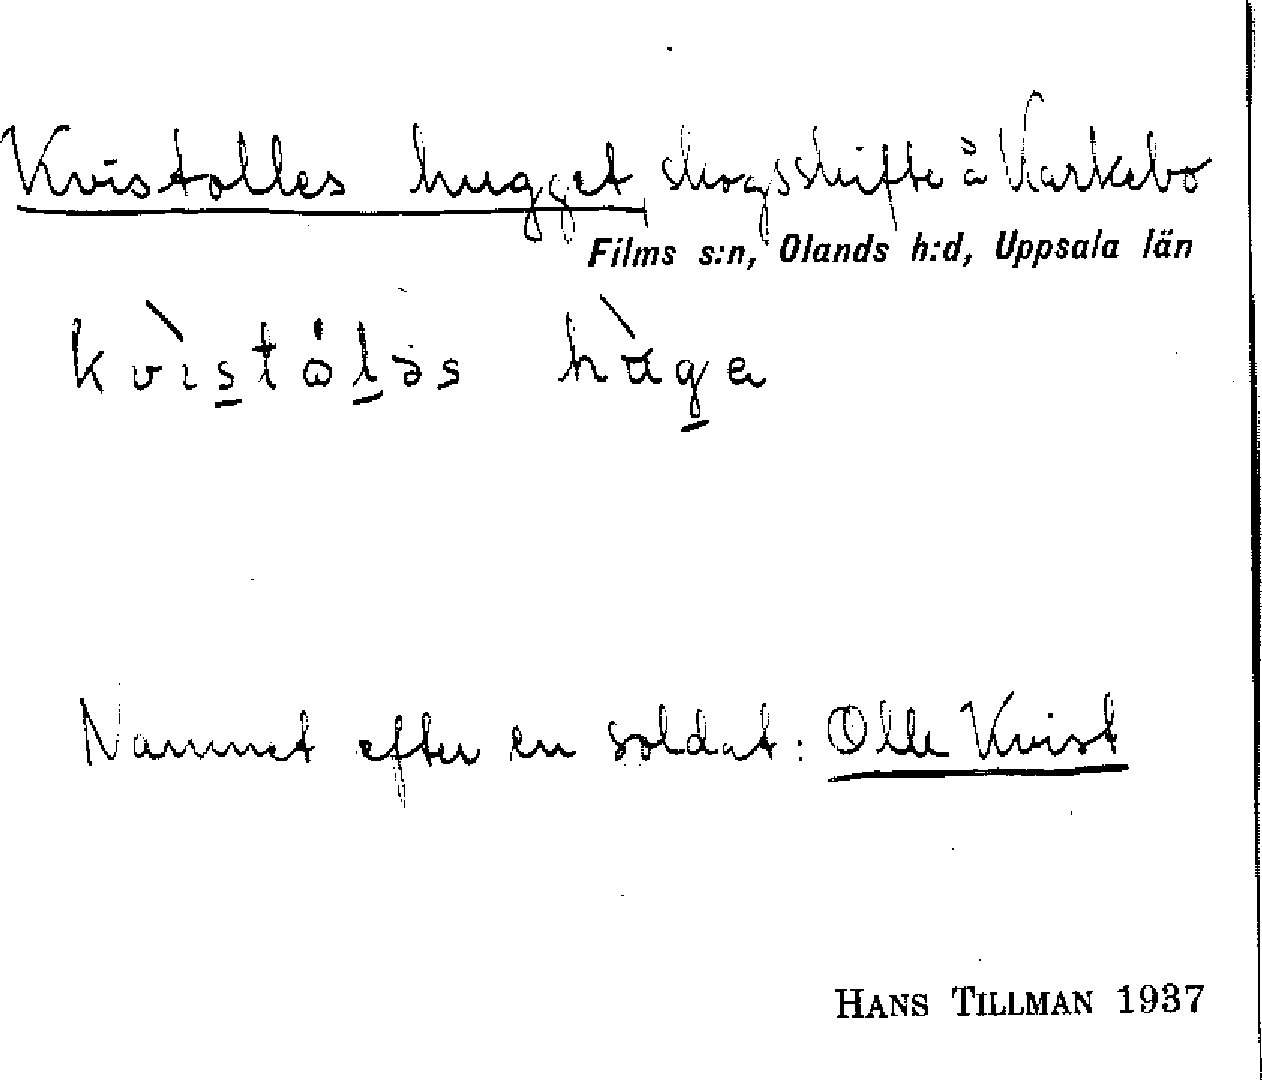 Kvistolles hugget skogsskifte å Karkebo
Films s:n, Olands h:d, Uppsala län
kvìstó̇ləs hàga
Namnet efter en soldat: Olle Kvist
HANS TILLMAN 1937